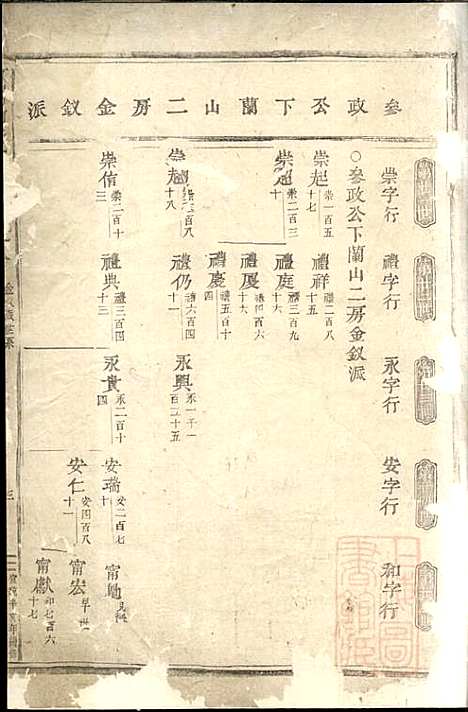 參政公下蘭山二房金釵派
崇字行
禮字行
永字行
安字行
和字行
○參政公下蘭山二房金釵派
崇起 崇一百五十七
禮祥 禮二百八十五
崇 崇二百三十
禮庭 禮三百九十六
禮厦
禮慶 禮五百十四
崇 十八
禮仍 禮六百四十一
永興 永一千一百二十五
崇信 崇二百十三
禮典 禮三百四十三
永貴 永二百十四
安瑞 安二百七十
甯勉
安仁 安四百八十一
甯宏 早世
甯獻 和七百六十七
三